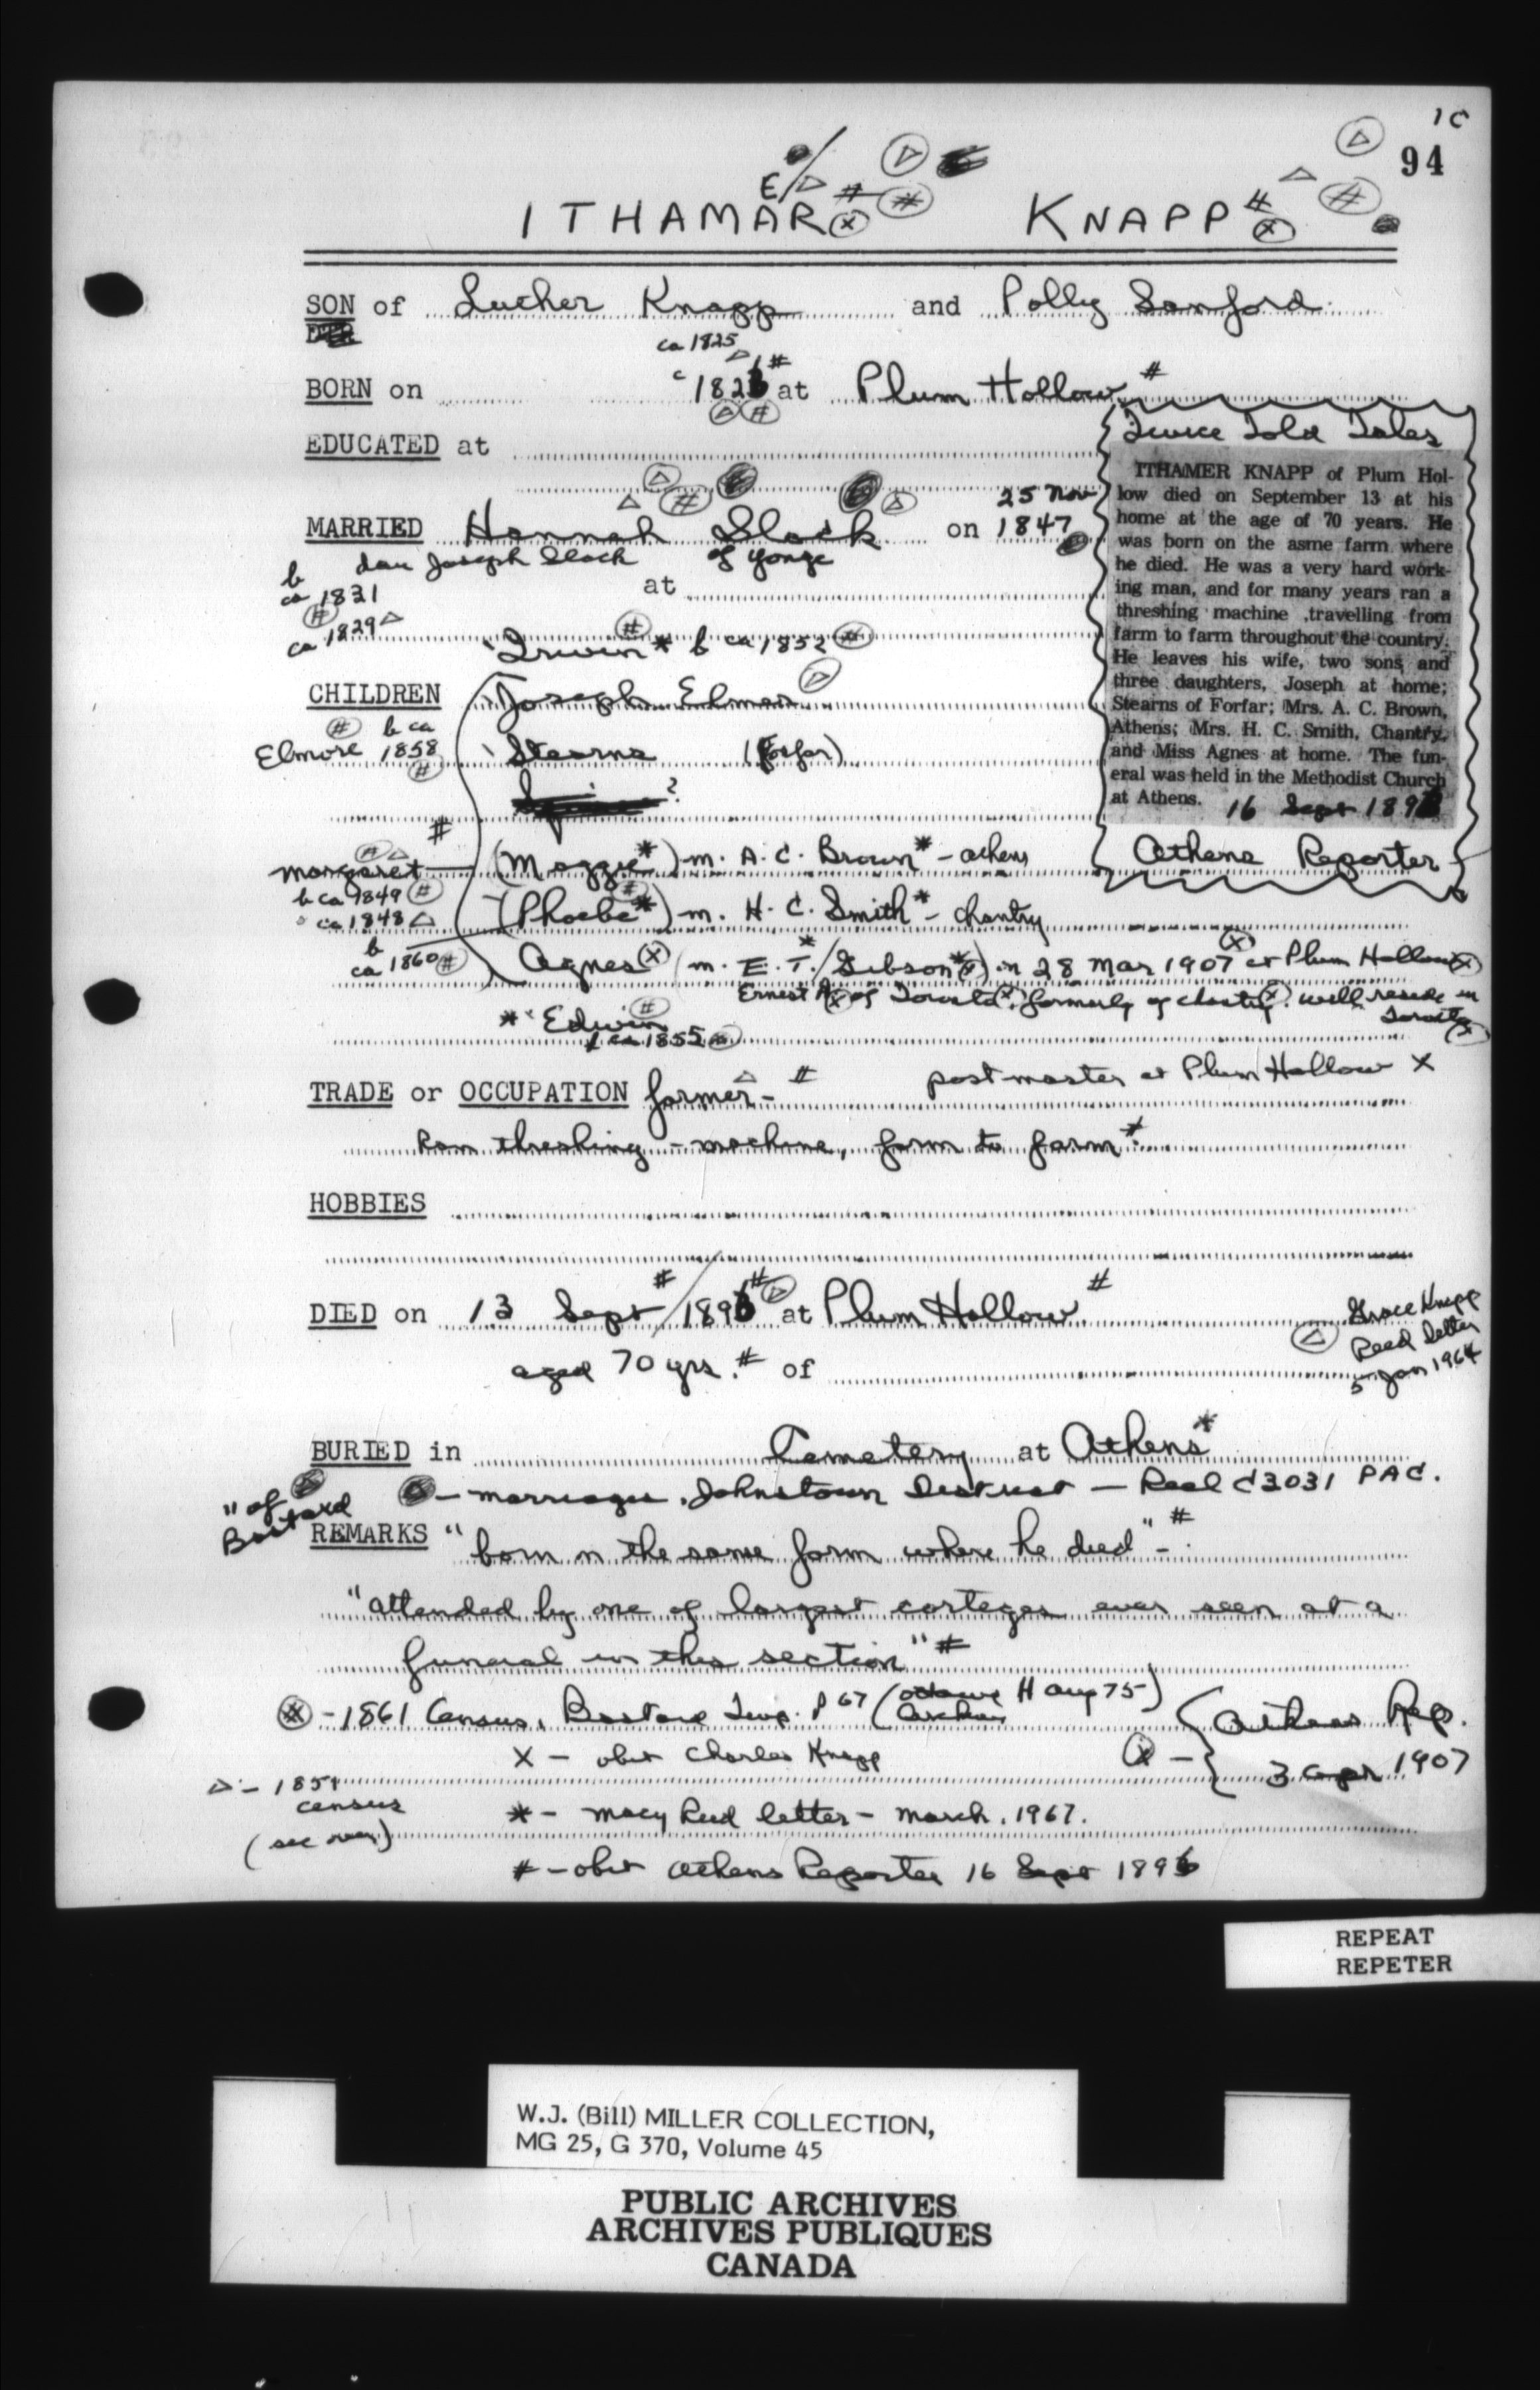 1C
94
ITHAMAR KNAPP
SON of Luther Knapp and Polly Sanford
ca 1825
BORN on c 1826 at Plum Hollow #
EDUCATED at
Twice Told Tales
ITHAMER KNAPP of Plum Hol-
low died on September 13 at his
home at the age of 70 years. He
was born on the asme farm where
he died. He was a very hard work-
ing man, and for many years ran a
threshing machine ,travelling from
farm to farm throughout the country.
He leaves his wife, two sons and
three daughters, Joseph at home;
Stearns of Forfar; Mrs. A. C. Brown,
Athens; Mrs. H. C. Smith, Chantry,
and Miss Agnes at home. The fun-
eral was held in the Methodist Church
at Athens. 16 Sept 1896
Athens Reporter
25 Nov
MARRIED Hannah Slack on 1847
dau Joseph Slack of Yonge
b ca 1831 at
ca 1829
Irwin * b ca 1852 #
CHILDREN Joseph Elmer
Elmore # b ca 1858 #
Stearns (Forfar)
Margaret # (Maggie*) m. A. C. Brown* - Athens
b ca 1849 #
ca 1848
(Phoebe*) m. H. C. Smith* - Chantry
b ca 1860 #
Agnes (x) (m. E. T.* / Gibson*) in 28 Mar 1907 at Plum Hollow (x)
Ernest A. of Toronto, formerly of Chantry, will reside in Toronto
* Edwin #
b ca 1855
TRADE or OCCUPATION farmer - # postmaster at Plum Hollow X
Ran threshing - machine, farm to farm #
HOBBIES
DIED on 13 Sept # / 1896 # at Plum Hollow #
aged 70 yrs. # of
Grace Knapp
Reed letter
5 Jan 1964
BURIED in Cemetery at Athens *
"of Bastard
- marriages, Johnstown District - Reel C3031 PAC.
REMARKS "born on the same farm where he died" - #
"attended by one of largest corteges ever seen at a
funeral in this section" #
# - 1861 Census, Bastard Twp. P 67 (H Aug 75)
X - obit Charles Knapp
(x) - { Athens Rep. 3 Apr 1907
△ - 1851
census
(see over)
* - Macy Reed letter - March, 1967.
# - obit Athens Reporter 16 Sept 1896
REPEAT
REPETER
W.J. (Bill) MILLER COLLECTION,
MG 25, G 370, Volume 45
PUBLIC ARCHIVES
ARCHIVES PUBLIQUES
CANADA